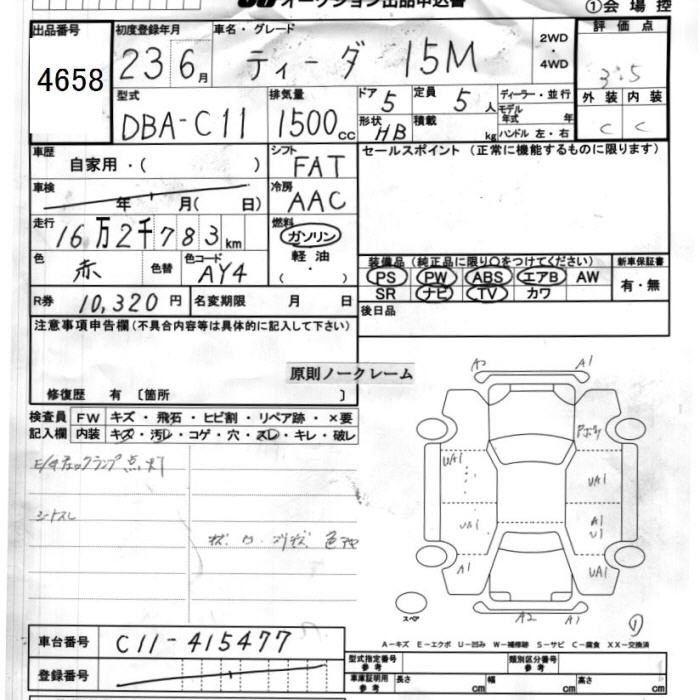 オークション出品申込書
①会場控
出品番号
4658
初度登録年月
23 6月
車名・グレード
ティーダ 15M
2WD
・
4WD
評価点
3.5
型式
DBA-C11
排気量
1500cc
ドア 5
定員 5人
形状 HB
積載 kg
ディーラー・並行
モデル年式 年
ハンドル 左・右
外装 内装
C C
車歴
自家用・( )
シフト
FAT
セールスポイント (正常に機能するものに限ります)
車検
年 月( 日)
冷房
AAC
走行
16万2千783km
燃料
ガソリン
軽油
( ・ )
色
赤
色替
色コード
AY4
装備品 (純正品に限り○をつけてください)
PS PW ABS エアB AW
SR ナビ TV カワ
新車保証書
有・無
R券 10,320円
名変期限 月 日
後日品
注意事項申告欄(不具合内容等は具体的に記入して下さい)
原則ノークレーム
修復歴 有 〔箇所 〕
検査員
記入欄
FW キズ・飛石・ヒビ割・リペア跡・×要
内装 キズ・汚レ・コゲ・穴・スレ・キレ・破レ
点灯
シートスレ
A2
A1
UA1
UA1
UA1
A1
U1
A1
UA1
スペア
A2
A1
①
A-キズ E-エクボ U-凹み W-補修跡 S-サビ C-腐食 XX-交換済
車台番号
C11-415477
登録番号
型式指定番号
参考
類別区分番号
参考
車庫証明用
参考
長さ cm
幅 cm
高さ cm